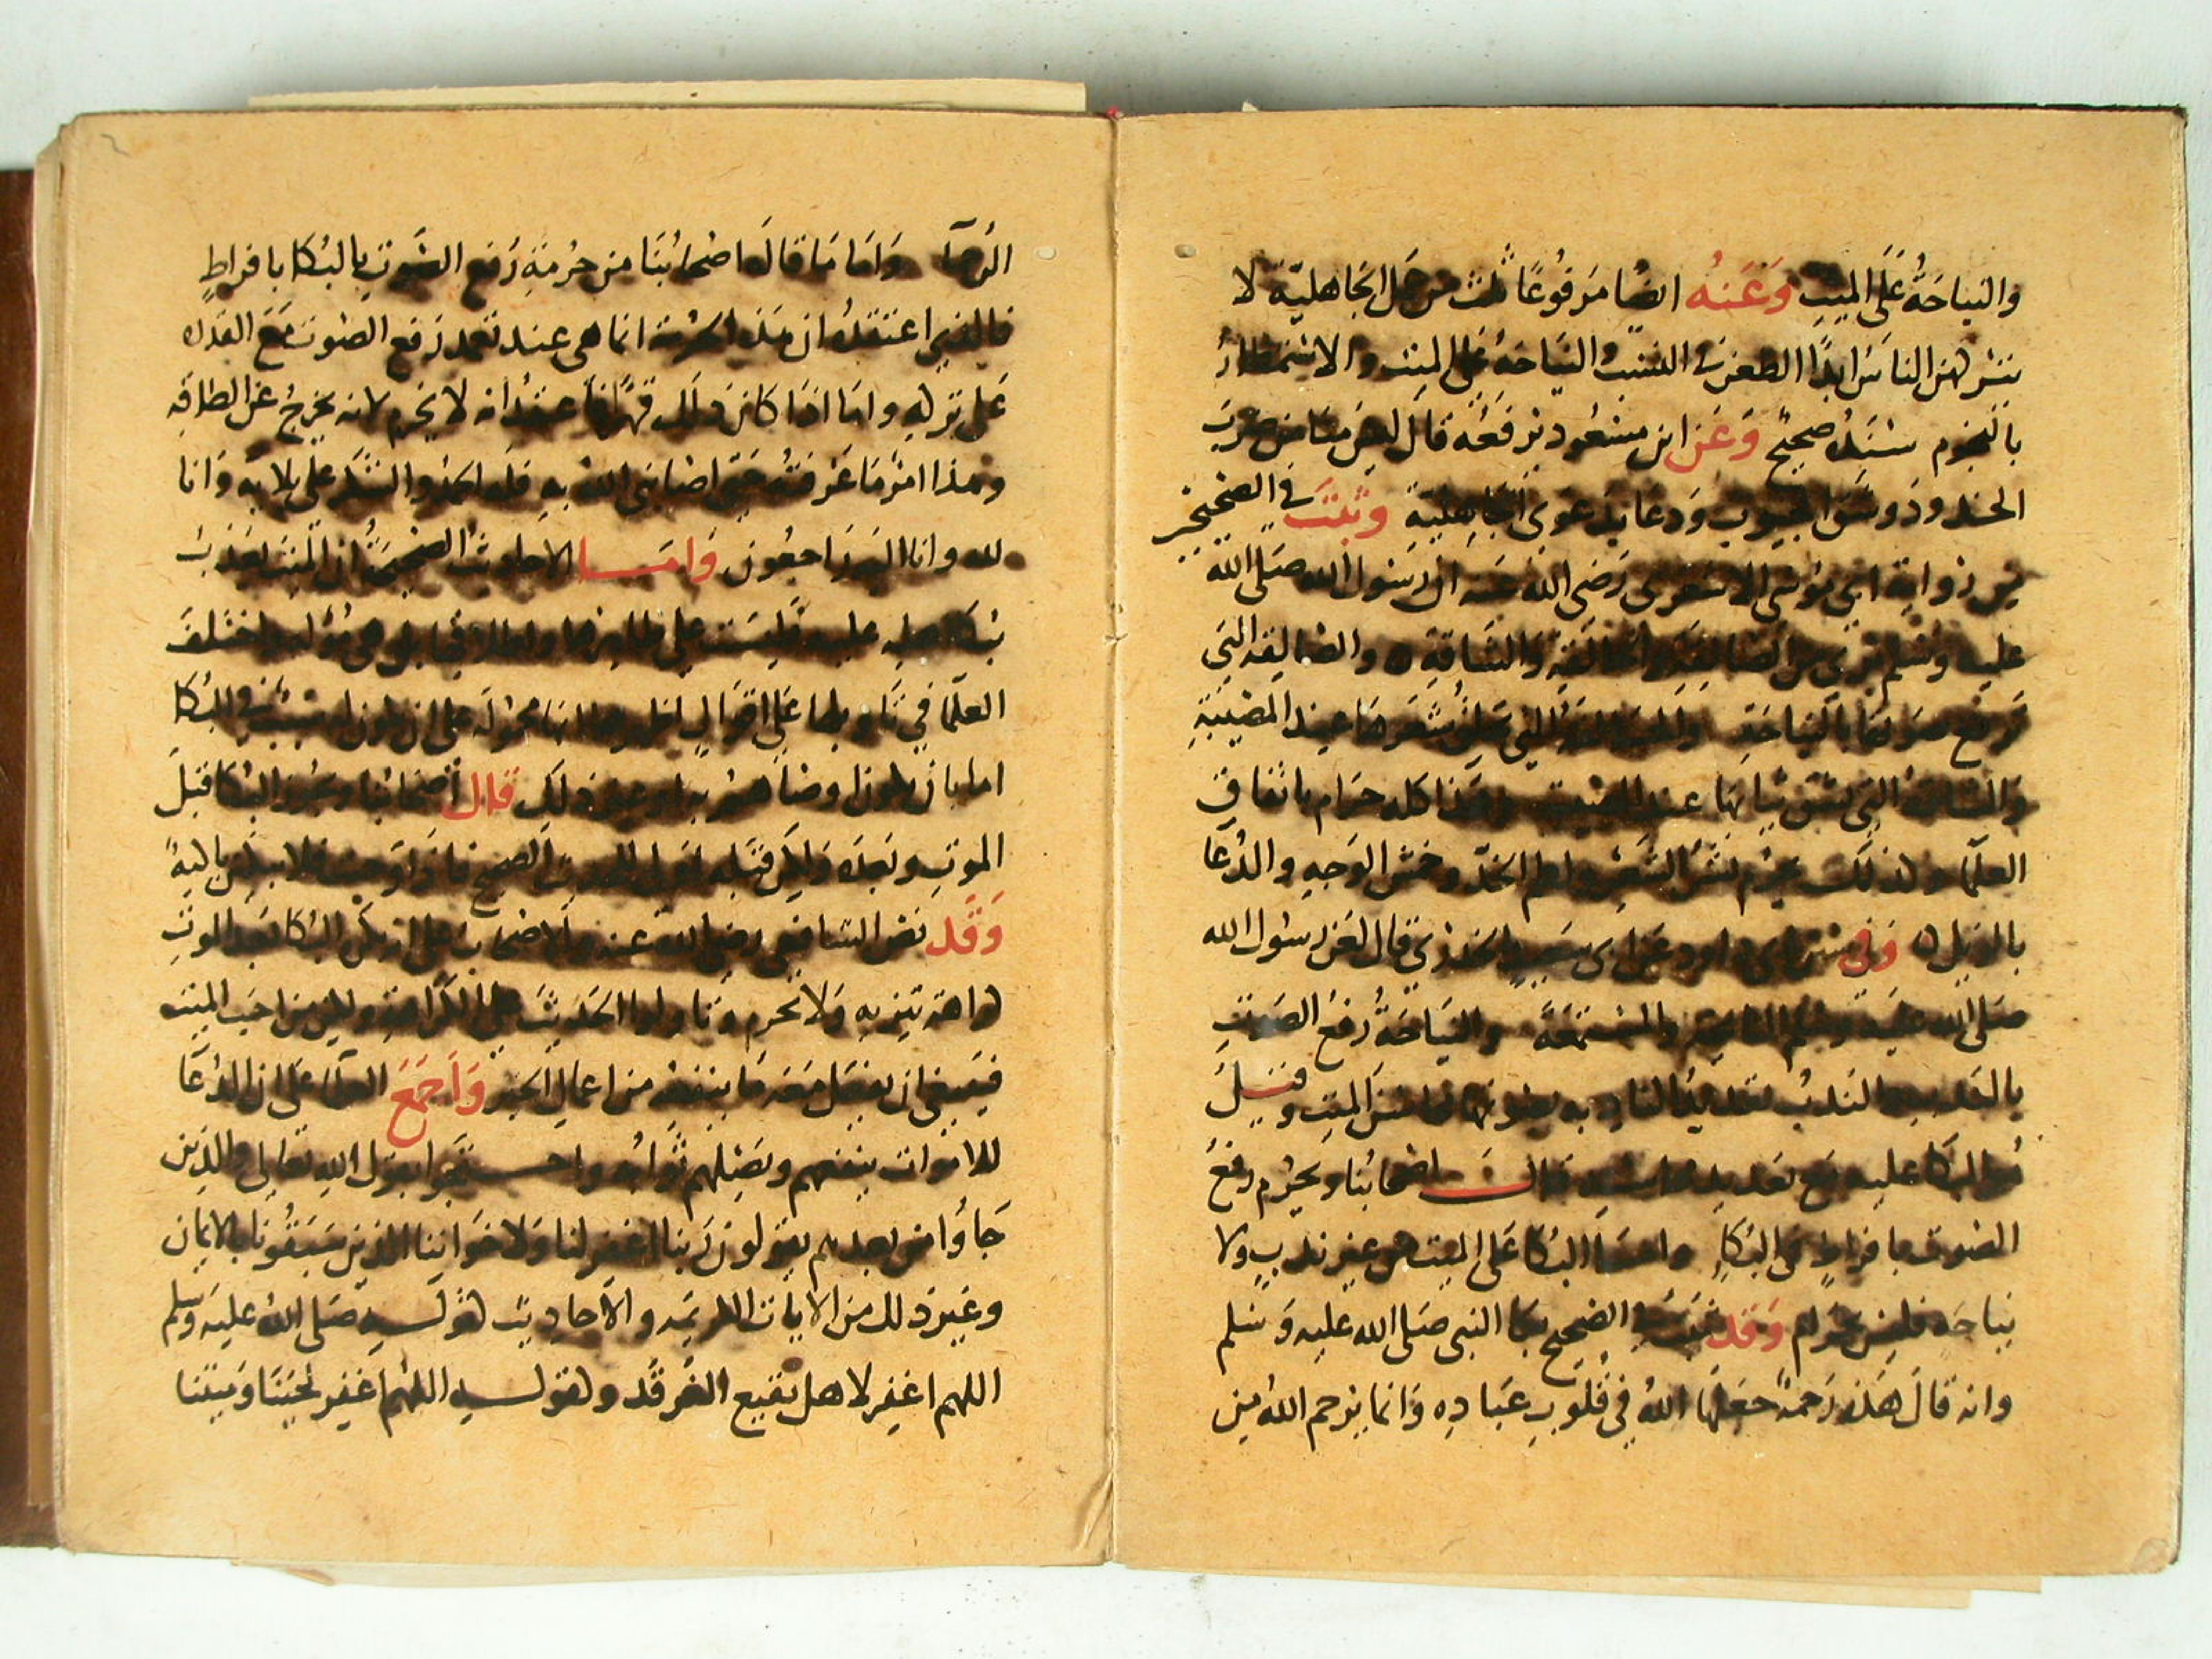 والنياحة على الميت وعنه ايضا مرفوعا ثلث من عمل الجاهلية لا
يتركهن الناس ابدا الطعن في النسب والنياحة على الميت والاستمطار
بالنجوم سنده صحيح وعن ابن مسعود يرفعه قال ليس منا من ضرب
الخدود وشق الجيوب ودعا بدعوى الجاهلية وثبت في الصحيحين
من رواية ابي موسى الاشعري رضى الله عنه ان رسول الله صلى الله
عليه وسلم برى من الصالقة والحالقة والشاقة والصالقة التي
ترفع صوتها بالنياحة والحالقة التي تحلق شعرها عند المصيبة
والشاقة التي تشق ثيابها عند المصيبة وهذا كله حرام باتفاق
العلما وكذلك يحرم نشر الشعر ولطم الخد وخمش الوجه والدعا
بالويل وفي سنن ابى داود عن ابى سعيد الخدري قال لعن رسول الله
صلى الله عليه وسلم النايحة والمستمعة والنياحة رفع الصوت
بالندب والندب تعديد النادبه بصوتها محاسن الميت وقيل
هو البكا عليه مع تعديد محاسنه قال اصحابنا ويحرم رفع
الصوت بافراط في البكا واما البكا على الميت من غير ندب ولا
نياحة فليس بحرام وقد ثبت في الصحيح بكا النبي صلى الله عليه وسلم
وانه قال هذه رحمة جعلها الله في قلوب عباده وانما يرحم الله من
الرحما واما ما قاله اصحابنا من حرمة رفع الصوت بالبكا بافراط
فالذي اعتقده ان هذه الحرمة انما هي عند تعمد رفع الصوت مع القدره
على تركه واما اذا كان ذلك قهرا فاعتقد انه لا يحرم لانه يخرج عن الطاقه
وهذا امر ما عرفته حتى اصابني الله به فله الحمد والشكر على بلائه وانا
لله وانا اليه راجعون واما الاحاديث الصحيحة ان الميت يعذب
ببكا اهله عليه فليست على ظاهرها واطلاقها بل هي مؤوله واختلف
العلما في تاويلها على اقوال اظهرها انها محموله على ان يكون له سبب في البكا
اما بان يكون اوصاهم به او غير ذلك قال اصحابنا ويجوز البكا قبل
الموت وبعده ولكن قبله اولى للحديث الصحيح فاذا وجبت فلا تبكين باكية
وقد نص الشافعي رضى الله عنه والاصحاب على انه يكره البكا بعد الموت
كراهة تنزيه ولا تحرم وتاولوا الحديث على الكراهة ولكن من احب الميت
فينبغي ان يفعل معه ما ينفعه من اعمال الخير واجمع العلما على ان الدعا
للاموات ينفعهم ويصلهم ثوابه واحتجوا بقول الله تعالى والذين
جاؤا من بعدهم يقولون ربنا اغفر لنا ولاخواننا الذين سبقونا بالايمان
وغير ذلك من الايات الكريمه والاحاديث كقوله صلى الله عليه وسلم
اللهم اغفر لاهل بقيع الغرقد ولقوله اللهم اغفر لحينا وميتنا